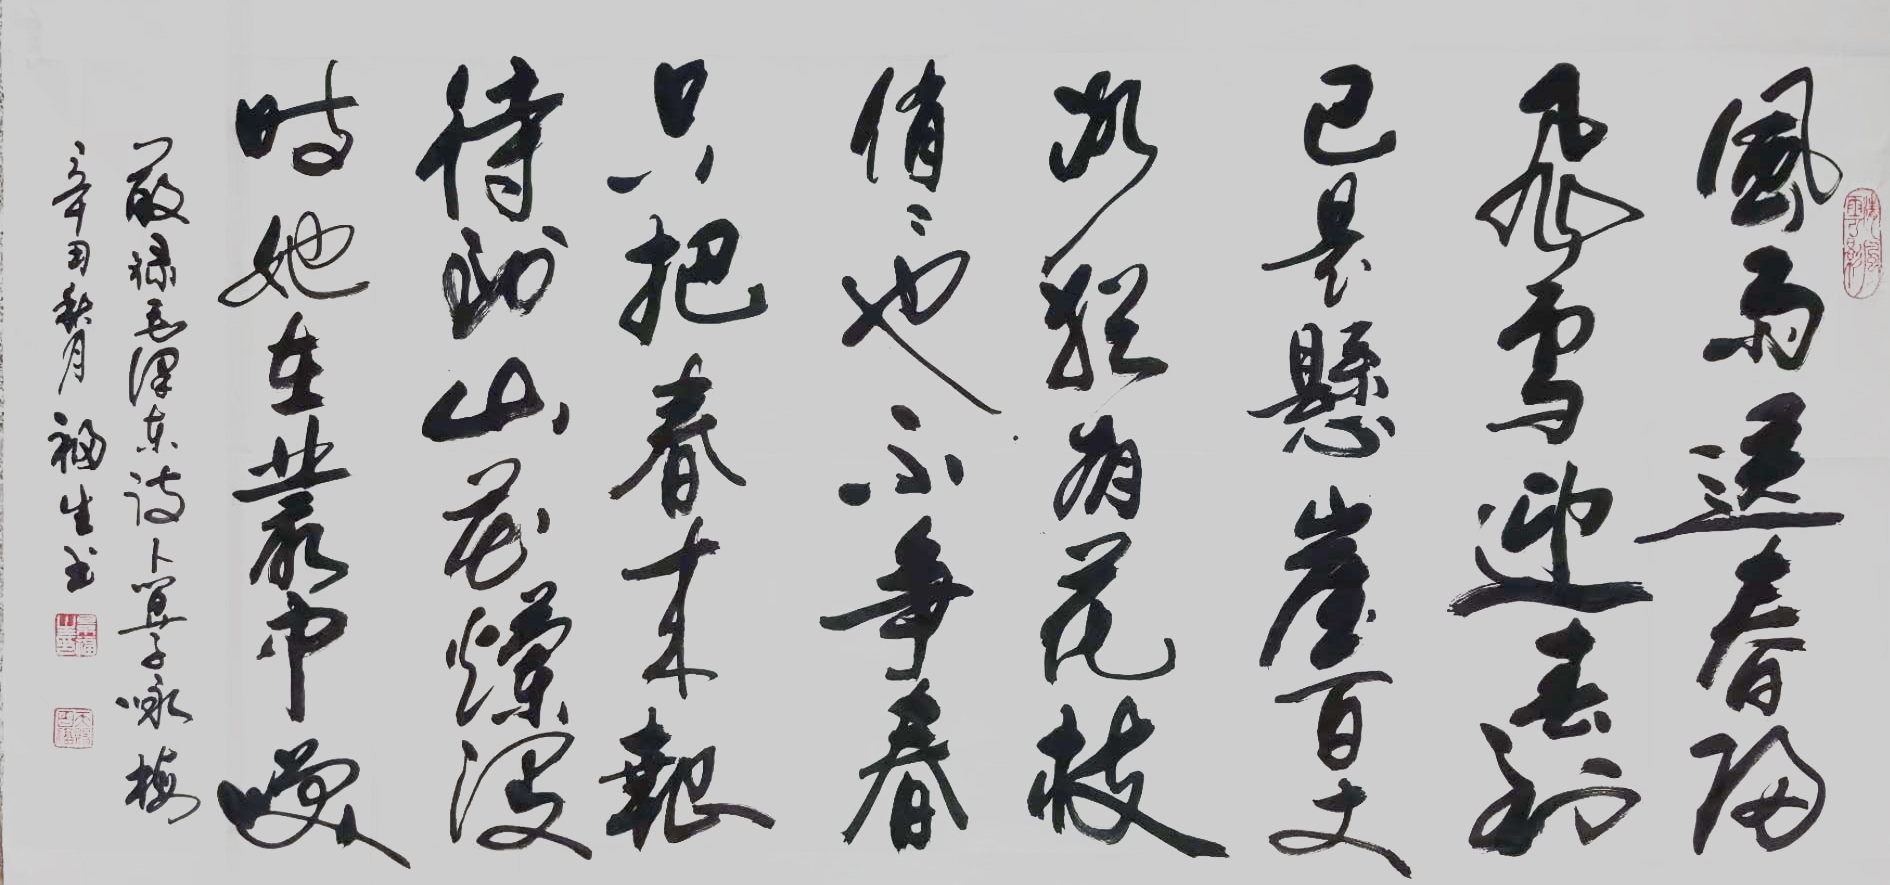 風雨送春歸
飛雪迎春到
已是懸崖百丈
冰猶有花枝
俏也不爭春
只把春來報
待到山花爛漫
時她在叢中笑
敬録毛澤東詩卜算子咏梅
辛丑秋月福生书